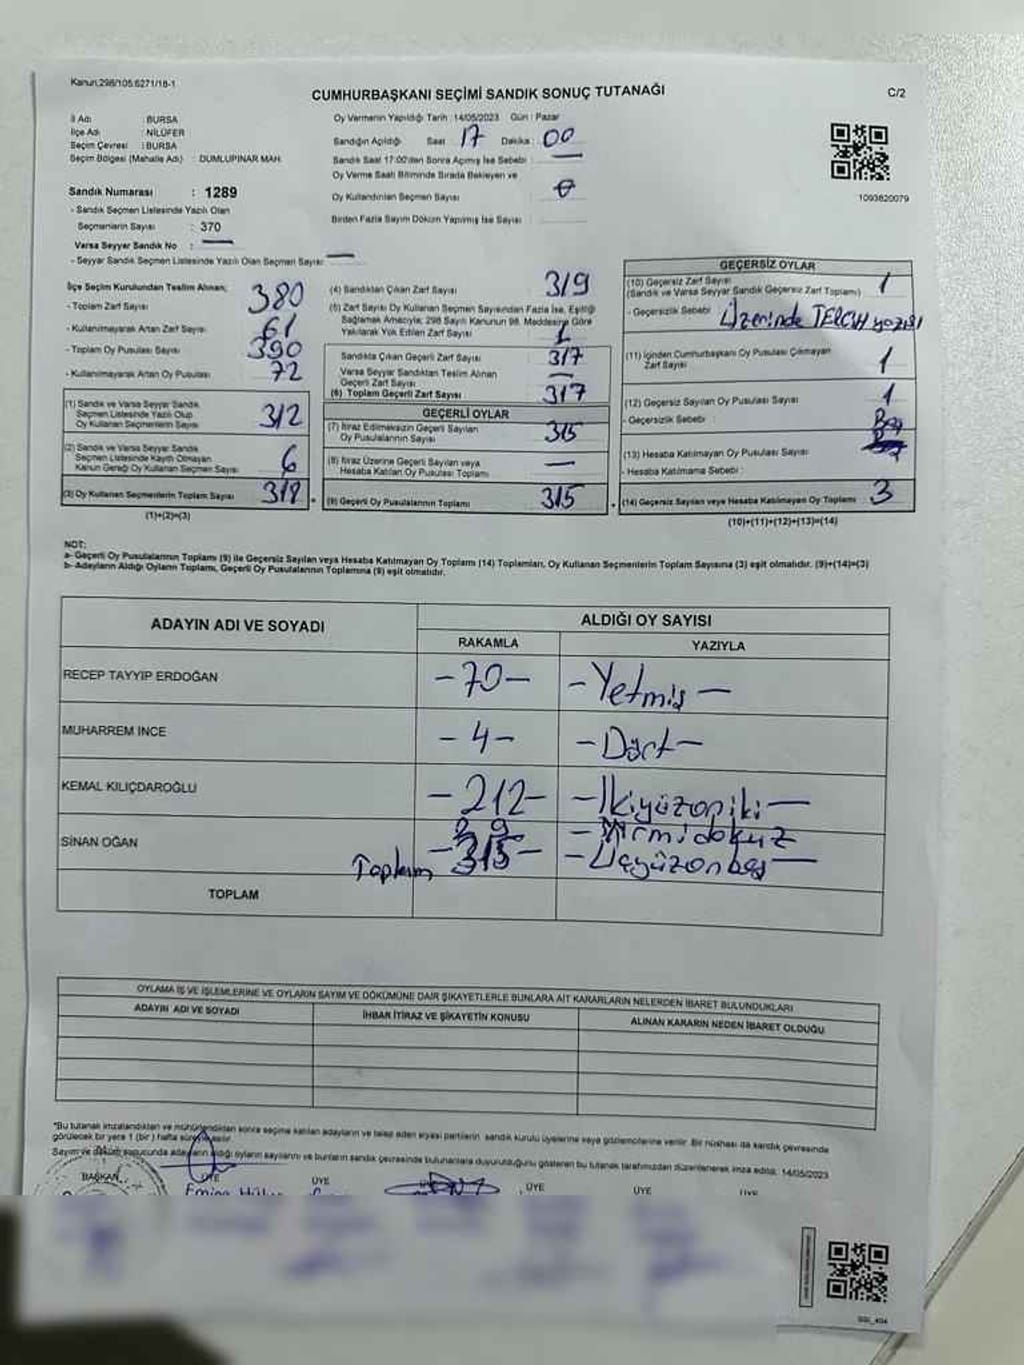 Kanun;298/105.6271/18-1
CUMHURBAŞKANI SEÇİMİ SANDIK SONUÇ TUTANAĞI
C/2
İl Adı : BURSA
İlçe Adı : NİLÜFER
Seçim Çevresi : BURSA
Seçim Bölgesi (Mahalle Adı) : DUMLUPINAR MAH.
Sandık Numarası : 1289
- Sandık Seçmen Listesinde Yazılı Olan
Seçmenlerin Sayısı : 370
Varsa Seyyar Sandık No : —
- Seyyar Sandık Seçmen Listesinde Yazılı Olan Seçmen Sayısı: —
Oy Vermenin Yapıldığı Tarih : 14/05/2023 Gün : Pazar
Sandığın Açıldığı Saat : 17 Dakika : 00
Sandık Saat 17:00'den Sonra Açılmış İse Sebebi : —
Oy Verme Saati Bitiminde Sırada Bekleyen ve
Oy Kullandırılan Seçmen Sayısı : 0
Birden Fazla Sayım Döküm Yapılmış İse Sayısı :
1093820079
İlçe Seçim Kurulundan Teslim Alınan;
- Toplam Zarf Sayısı 380
- Kullanılmayarak Artan Zarf Sayısı 61
- Toplam Oy Pusulası Sayısı 390
- Kullanılmayarak Artan Oy Pusulası 72
(1) Sandık ve Varsa Seyyar Sandık
Seçmen Listesinde Yazılı Olup
Oy Kullanan Seçmenlerin Sayısı 312
(2) Sandık ve Varsa Seyyar Sandık
Seçmen Listesinde Kayıtlı Olmayan
Kanun Gereği Oy Kullanan Seçmen Sayısı 6
(3) Oy Kullanan Seçmenlerin Toplam Sayısı 318
(1)+(2)=(3)
(4) Sandıktan Çıkan Zarf Sayısı 319
(5) Zarf Sayısı Oy Kullanan Seçmen Sayısından Fazla İse, Eşitliği
Sağlamak Amacıyla; 298 Sayılı Kanunun 98. Maddesine Göre
Yakılarak Yok Edilen Zarf Sayısı 1
Sandıkta Çıkan Geçerli Zarf Sayısı 317
Varsa Seyyar Sandıktan Teslim Alınan
Geçerli Zarf Sayısı —
(6) Toplam Geçerli Zarf Sayısı 317
GEÇERLİ OYLAR
(7) İtiraz Edilmeksizin Geçerli Sayılan
Oy Pusulalarının Sayısı 315
(8) İtiraz Üzerine Geçerli Sayılan veya
Hesaba Katılan Oy Pusulası Toplamı —
(9) Geçerli Oy Pusulalarının Toplamı 315
GEÇERSİZ OYLAR
(10) Geçersiz Zarf Sayısı 1
(Sandık ve Varsa Seyyar Sandık Geçersiz Zarf Toplamı)
- Geçersizlik Sebebi Üzerinde TERCİH yazısı
(11) İçinden Cumhurbaşkanı Oy Pusulası Çıkmayan
Zarf Sayısı 1
(12) Geçersiz Sayılan Oy Pusulası Sayısı 1
- Geçersizlik Sebebi :
(13) Hesaba Katılmayan Oy Pusulası Sayısı
- Hesaba Katılmama Sebebi :
(14) Geçersiz Sayılan veya Hesaba Katılmayan Oy Toplamı 3
(10)+(11)+(12)+(13)=(14)
NOT:
a- Geçerli Oy Pusulalarının Toplamı (9) ile Geçersiz Sayılan veya Hesaba Katılmayan Oy Toplamı (14) Toplamları, Oy Kullanan Seçmenlerin Toplam Sayısına (3) eşit olmalıdır. (9)+(14)=(3)
b- Adayların Aldığı Oyların Toplamı, Geçerli Oy Pusulalarının Toplamına (9) eşit olmalıdır.
ADAYIN ADI VE SOYADI
ALDIĞI OY SAYISI
RAKAMLA YAZIYLA
RECEP TAYYİP ERDOĞAN -70- -Yetmiş-
MUHARREM İNCE -4- -Dört-
KEMAL KILIÇDAROĞLU -212- -İkiyüzoniki-
SİNAN OĞAN 29 -Yirmidokuz
Toplam -315- -Üçyüzonbeş-
TOPLAM
OYLAMA İŞ VE İŞLEMLERİNE VE OYLARIN SAYIM VE DÖKÜMÜNE DAİR ŞİKAYETLERLE BUNLARA AİT KARARLARIN NELERDEN İBARET BULUNDUKLARI
ADAYIN ADI VE SOYADI İHBAR İTİRAZ VE ŞİKAYETİN KONUSU ALINAN KARARIN NEDEN İBARET OLDUĞU
*Bu tutanak imzalandıktan ve mühürlendikten sonra seçime katılan adayların ve talep eden siyasi partilerin sandık kurulu üyelerine veya gözlemcilerine verilir. Bir nüshası da sandık çevresinde
görülecek bir yere 1 (bir) hafta süreyle asılır.
Sayım ve döküm sonucunda adayların aldığı oyların sayılarını ve bunların sandık çevresinde bulunanlara duyurulduğunu gösteren bu tutanak tarafımızdan düzenlenerek imza edildi. 14/05/2023
BAŞKAN ÜYE ÜYE ÜYE ÜYE ÜYE
Emine